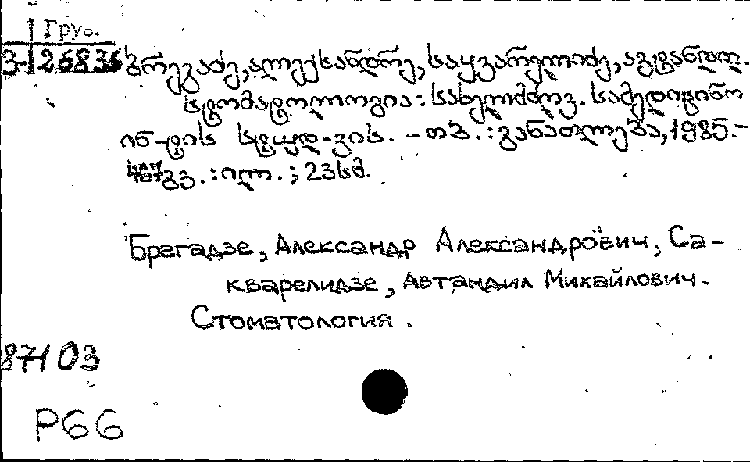 Груз.
3-26836 ბრეგაძე, ალექსანდრე, საყვარელიძე, ავტანდილ.
სტომატოლოგია: სახელმძღვ. სამედიცინო
ინ-ტის სტუდ-ვის. - თბ.: განათლება, 1985.-
გვ.: ილ.; 23სმ.
Брегадзе, Александр Александрович, Са-
кварелидзе, Автандил Михайлович.
Стоматология.
87/03
P66